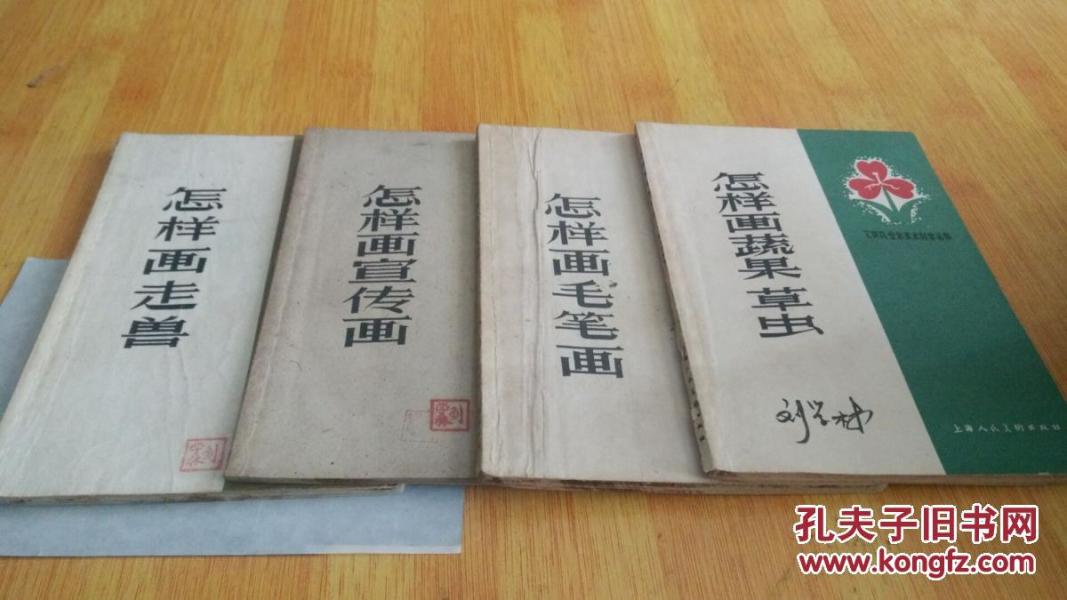 怎样画走兽
怎样画宣传画
怎样画毛笔画
怎样画蔬果草虫
刘学林
上海人民美术出版社
孔夫子旧书网
www.kongfz.com